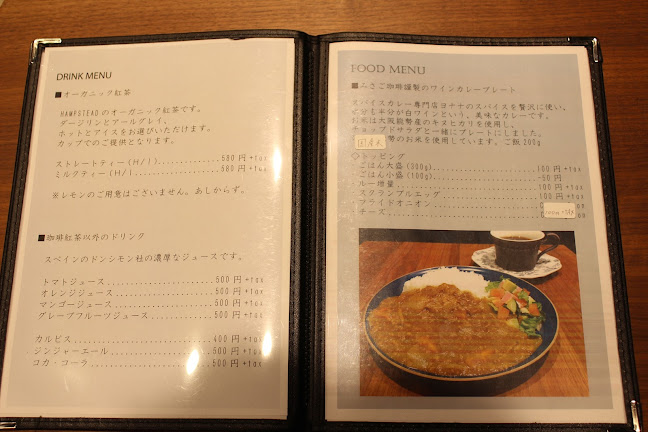 DRINK MENU
■オーガニック紅茶
HAMPSTEADのオーガニック紅茶です。
ダージリンとアールグレイ、
ホットとアイスをお選びいただけます。
カップでのご提供となります。
ストレートティー(H/I)..............580円+tax
ミルクティー(H/I)..................580円+tax
※レモンのご用意はございません。あしからず。
■珈琲紅茶以外のドリンク
スペインのドンシモン社の濃厚なジュースです。
トマトジュース......................500円+tax
オレンジジュース....................500円+tax
マンゴージュース....................500円+tax
グレープフルーツジュース............500円+tax
カルピス............................400円+tax
ジンジャーエール....................500円+tax
コカ・コーラ........................500円+tax
FOOD MENU
■みさご珈琲謹製のワインカレープレート
スパイスカレー専門店ヨナナのスパイスを贅沢に使い、
水分も半分が白ワインという、美味なカレーです。
お米は大阪能勢産のキヌヒカリを使用し、
チョップドサラダと一緒にプレートにしました。
国産米
のお米を使用しています。ご飯200g
◇トッピング
ごはん大盛(300g)..................100円+tax
ごはん小盛(100g)..................-50円
ルー増量............................100円+tax
スクランブルエッグ..................100円+tax
フライドオニオン
チーズ